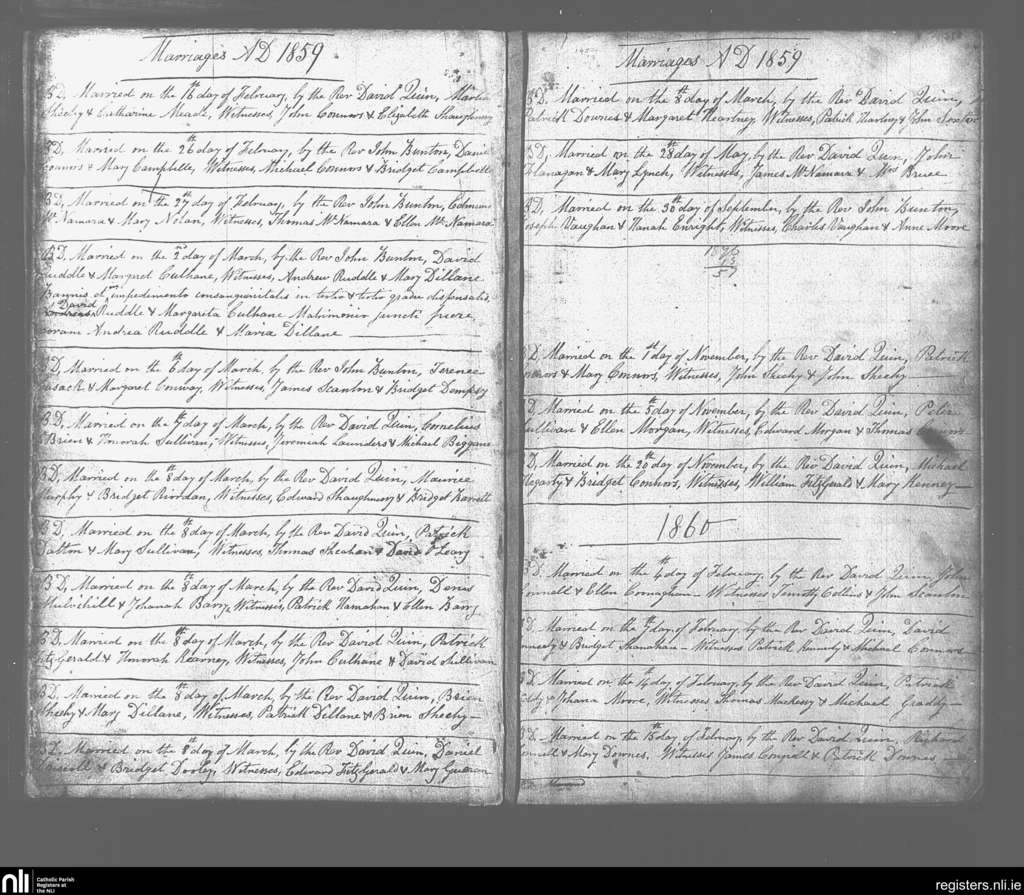 Marriages AD 1859
BD, Married on the 16th day of February, by the Rev David Quin, Martin
Sheehy & Catharine Meade, Witnesses, John Connors & Elizabeth Shaughnessy
BD, Married on the 26th day of February, by the Rev John Bunton, Daniel
Connors & Mary Campbelle, Witnesses, Michael Connors & Bridget Campbelle
BD, Married on the 27th day of February, by the Rev John Bunton, Edmund
McNamara & Mary Nolan, Witnesses, Thomas McNamara & Ellen McNamara
BD, Married on the 2nd day of March, by the Rev John Bunton, David
Ruddle & Margret Culhane, Witnesses, Andrew Ruddle & Mary Dillane
Bannis et impedimento consanguinitatis in tertio & tertio gradu dispensatis,
David
Ruddle & Margarita Culhane Matrimonio juncti fuere
coram Andrea Ruddle & Maria Dillane
BD, Married on the 6th day of March, by the Rev John Bunton, Terence
Cusack & Margaret Conway, Witnesses, James Scanlon & Bridget Dempsy
BD, Married on the 7th day of March, by the Rev David Quin, Cornelius
OBrien & Honorah Sullivan, Witnesses, Jeremiah Launders & Michael Biggane
BD, Married on the 8th day of March, by the Rev David Quin, Maurice
Murphy & Bridget Riordan, Witnesses, Edward Shaughnessy & Bridget Barrett
BD, Married on the 8th day of March, by the Rev David Quin, Patrick
Dalton & Mary Sullivan, Witnesses, Thomas Sheahan & David O'Leary
BD, Married on the 8th day of March, by the Rev David Quin, Denis
Mulvihill & Johanah Barry, Witnesses, Patrick Hanrahan & Ellen Barry
BD, Married on the 8th day of March, by the Rev David Quin, Patrick
FitzGerald & Honorah Kearney, Witnesses, John Culhane & David Sullivan
BD, Married on the 8th day of March, by the Rev David Quin, Brien
Sheehy & Mary Dillane, Witnesses, Patrick Dillane & Brien Sheehy
BD, Married on the 8th day of March, by the Rev David Quin, Daniel
Driscoll & Bridget Dooley, Witnesses, Edward FitzGerald & Mary
Marriages AD 1859
BD, Married on the 8th day of March, by the Revd David Quin,
Patrick Downes & Margaret Heartney Witnesses, Patrick Hartney & John
BD, Married on the 28th day of May, by the Rev David Quin, John
Flanagan & Mary Lynch, Witnesses, James McNamara & Mrs Bruce
BD, Married on the 30th day of September, by the Rev John Bunton,
Joseph Vaughan & Hanah Enright, Witnesses, Charles Vaughan & Anne Moore
57
BD, Married on the 1st day of November, by the Rev David Quin, Patrick
Connors & Mary Connors, Witnesses, John Sheehy & John Sheehy
BD, Married on the 5th day of November, by the Rev David Quin, Peter
Sullivan & Ellen Morgan, Witnesses, Edward Morgan & Thomas Connors
BD, Married on the 20th day of November, by the Rev David Quin, Michael
Hegarty & Bridget Connors, Witnesses, William FitzGerald & Mary Kenney
1860
BD. Married on the 4th day of February, by the Rev David Quin, John
Connell & Ellen Connaghan Witnesses Timothy Collins & John Scanlan
BD. Married on the 7th day of February by the Rev David Quin, David
Kennedy & Bridget Shanahan - Witnesses Patrick Kennedy & Michael Connors
BD Married on the 14th day of February, by the Rev David Quin, Patrick
& Johana Moore, Witnesses Thomas Mackessy & Michael Graddy
BD. Married on the 15th day of February by the Rev David Quin, Richard
Connell & Mary Downes. Witnesses James Enright & Patrick Downes
Married
nli
Catholic Parish
Registers at
the NLI
registers.nli.ie